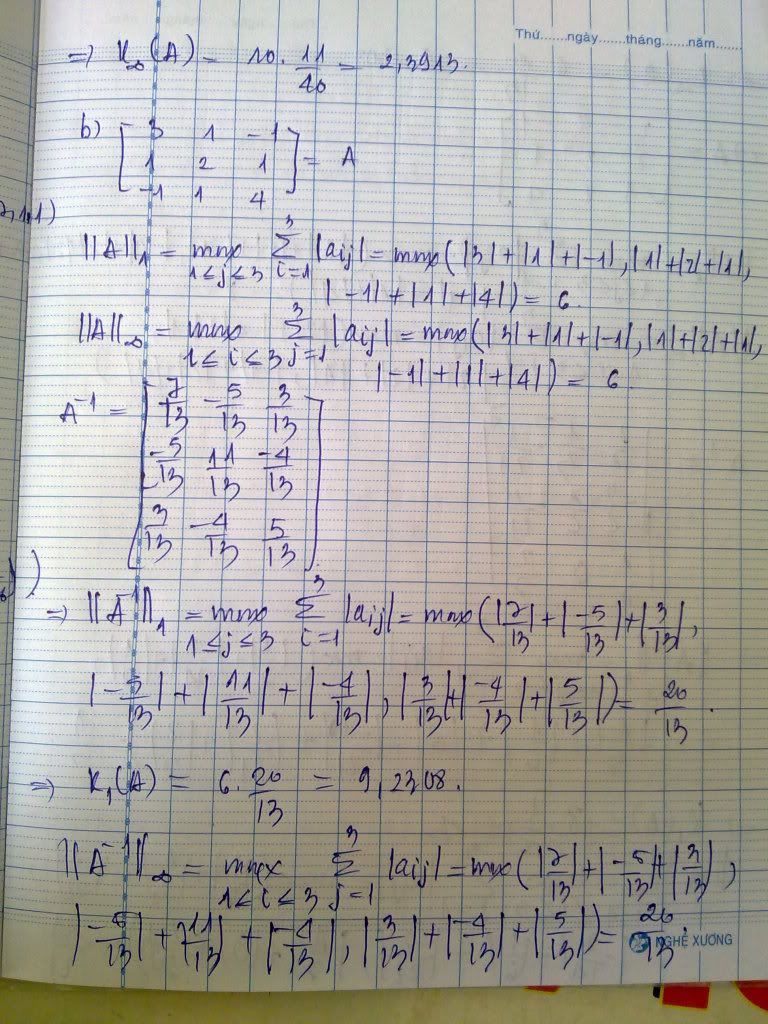 Thứ......ngày......tháng......năm......
⇒ K∞(A) = 10. 11/46 = 2,3913.
b) [3 1 -1
1 2 1 ] = A
-1 1 4
2,1,1)
||A||₁ = max 1≤j≤3 Σ³ i=1 |aij| = max(|3|+|1|+|-1|, |1|+|2|+|1|,
|-1|+|1|+|4|) = 6.
||A||∞ = max 1≤i≤3 Σ³ j=1 |aij| = max(|3|+|1|+|-1|, |1|+|2|+|1|,
|-1|+|1|+|4|) = 6.
A⁻¹ = [7/13 -5/13 3/13
-5/13 11/13 -4/13
3/13 -4/13 5/13]
⇒ ||A⁻¹||₁ = max 1≤j≤3 Σ³ i=1 |aij| = max(|7/13|+|-5/13|+|3/13|,
|-5/13|+|11/13|+|-4/13|, |3/13|+|-4/13|+|5/13|) = 20/13.
⇒ K₁(A) = 6. 20/13 = 9,2308.
||A⁻¹||∞ = max 1≤i≤3 Σ³ j=1 |aij| = max(|7/13|+|-5/13|+|3/13|,
|-5/13|+|11/13|+|-4/13|, |3/13|+|-4/13|+|5/13|) = 20/13.
NGHỆ XƯƠNG